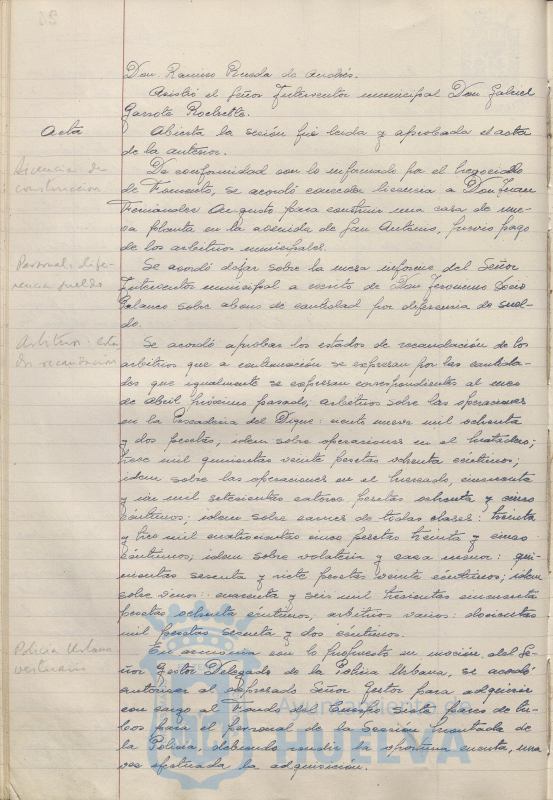 Don Ramiro Rueda de Andrés.
Asistió el Señor Interventor municipal Don Gabriel
Garrote Rochette.
Acta
Abierta la sesión fué leida y aprobada el acta
de la anterior.
Licencia de
construccion
De conformidad con lo informado por el Negociado
de Fomento, se acordó conceder licencia a Don Juan
Fernández Angusto para construir una casa de nue-
va planta en la avenida de San Antonio, previo pago
de los arbitrios municipales.
Personal: dife-
rencia sueldo
Se acordó dejar sobre la mesa informe del Señor
Interventor municipal a escrito de Don Jeronimo
Polanco sobre abono de cantidad por diferencia de suel-
do.
Arbitrios: esta
dos recaudacion
Se acordó aprobar los estados de recaudación de los
arbitrios que a continuación se expresan por las cantida-
des que igualmente se expresan correspondientes al mes
de abril próximo pasado; arbitrios sobre las operaciones
en la Pescadería del Dique: nueve mil ochenta
y dos pesetas, idem sobre operaciones en el matadero;
trece mil quinientas veinte pesetas ochenta céntimos;
idem sobre las operaciones en el mercado, cincuenta
y un mil setecientas catorce pesetas ochenta y cinco
céntimos; idem sobre carnes de todas clases: treinta
y tres mil cuatrocientas cinco pesetas treinta y cinco
céntimos; idem sobre volatería y caza menor: qui-
nientas sesenta y siete pesetas veinte céntimos; idem
sobre vinos: cuarenta y seis mil trescientas cincuenta
pesetas ochenta céntimos, arbitrios varios: doscientas
mil pesetas setenta y dos céntimos.
Policia Urbana
vestuario
En armonía con lo propuesto en moción del Se-
ñor Gestor Delegado de la Policia Urbana, se acordó
autorizar al expresado Señor Gestor para adquirir
con cargo al Fondo del Cuerpo siete pares de
para el personal de la Sección Montada de
la Policia, debiendo rendir la oportuna cuenta, una
vez efectuada la adquisición.
Ayuntamiento de
HUELVA